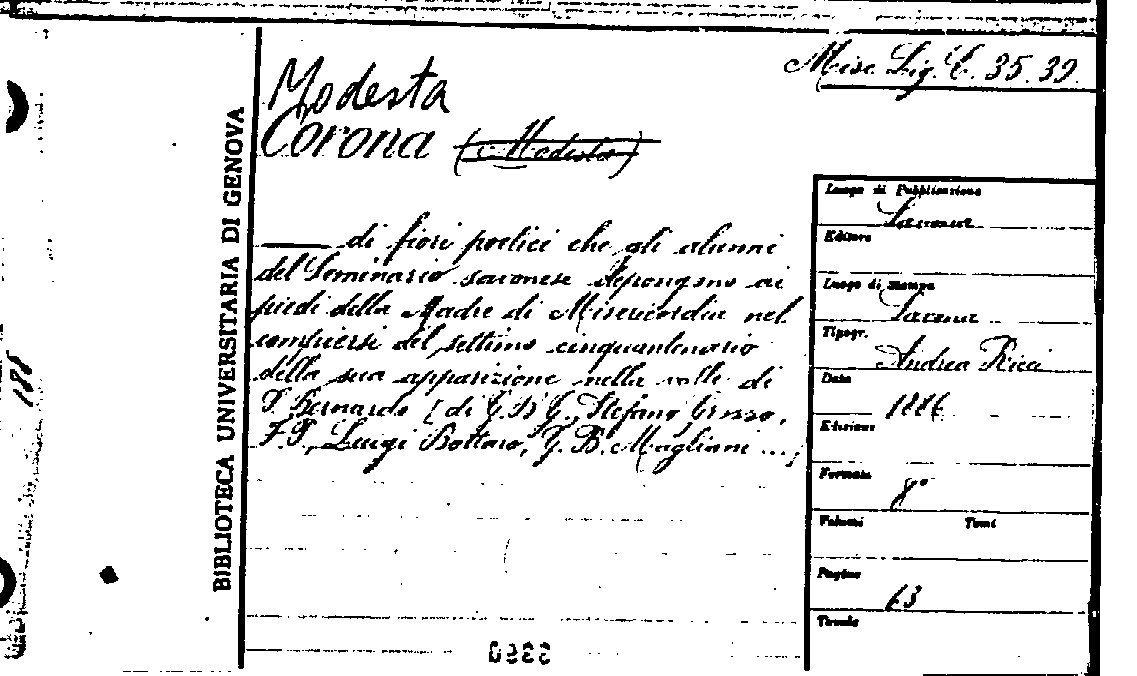 Misc. Lig. C. 35. 39
Modesta
Corona (Modesta)
BIBLIOTECA UNIVERSITARIA DI GENOVA
di fiori poetici che gli alunni
del Seminario savonese depongono ai
piedi della Madre di Misericordia nel
compiersi del settimo cinquantenario
della sua apparizione nella valle di
S. Bernardo [di G. B. G., Stefano Grosso,
F. P., Luigi Bottaro, G. B. Magliani ...]
Luogo di Pubblicazione
Savona
Editore
Luogo di stampa
Savona
Tipogr.
Andrea Ricci
Data
1886
Edizione
Formato
8°
Volumi Tomi
Pagine
63
Tavole